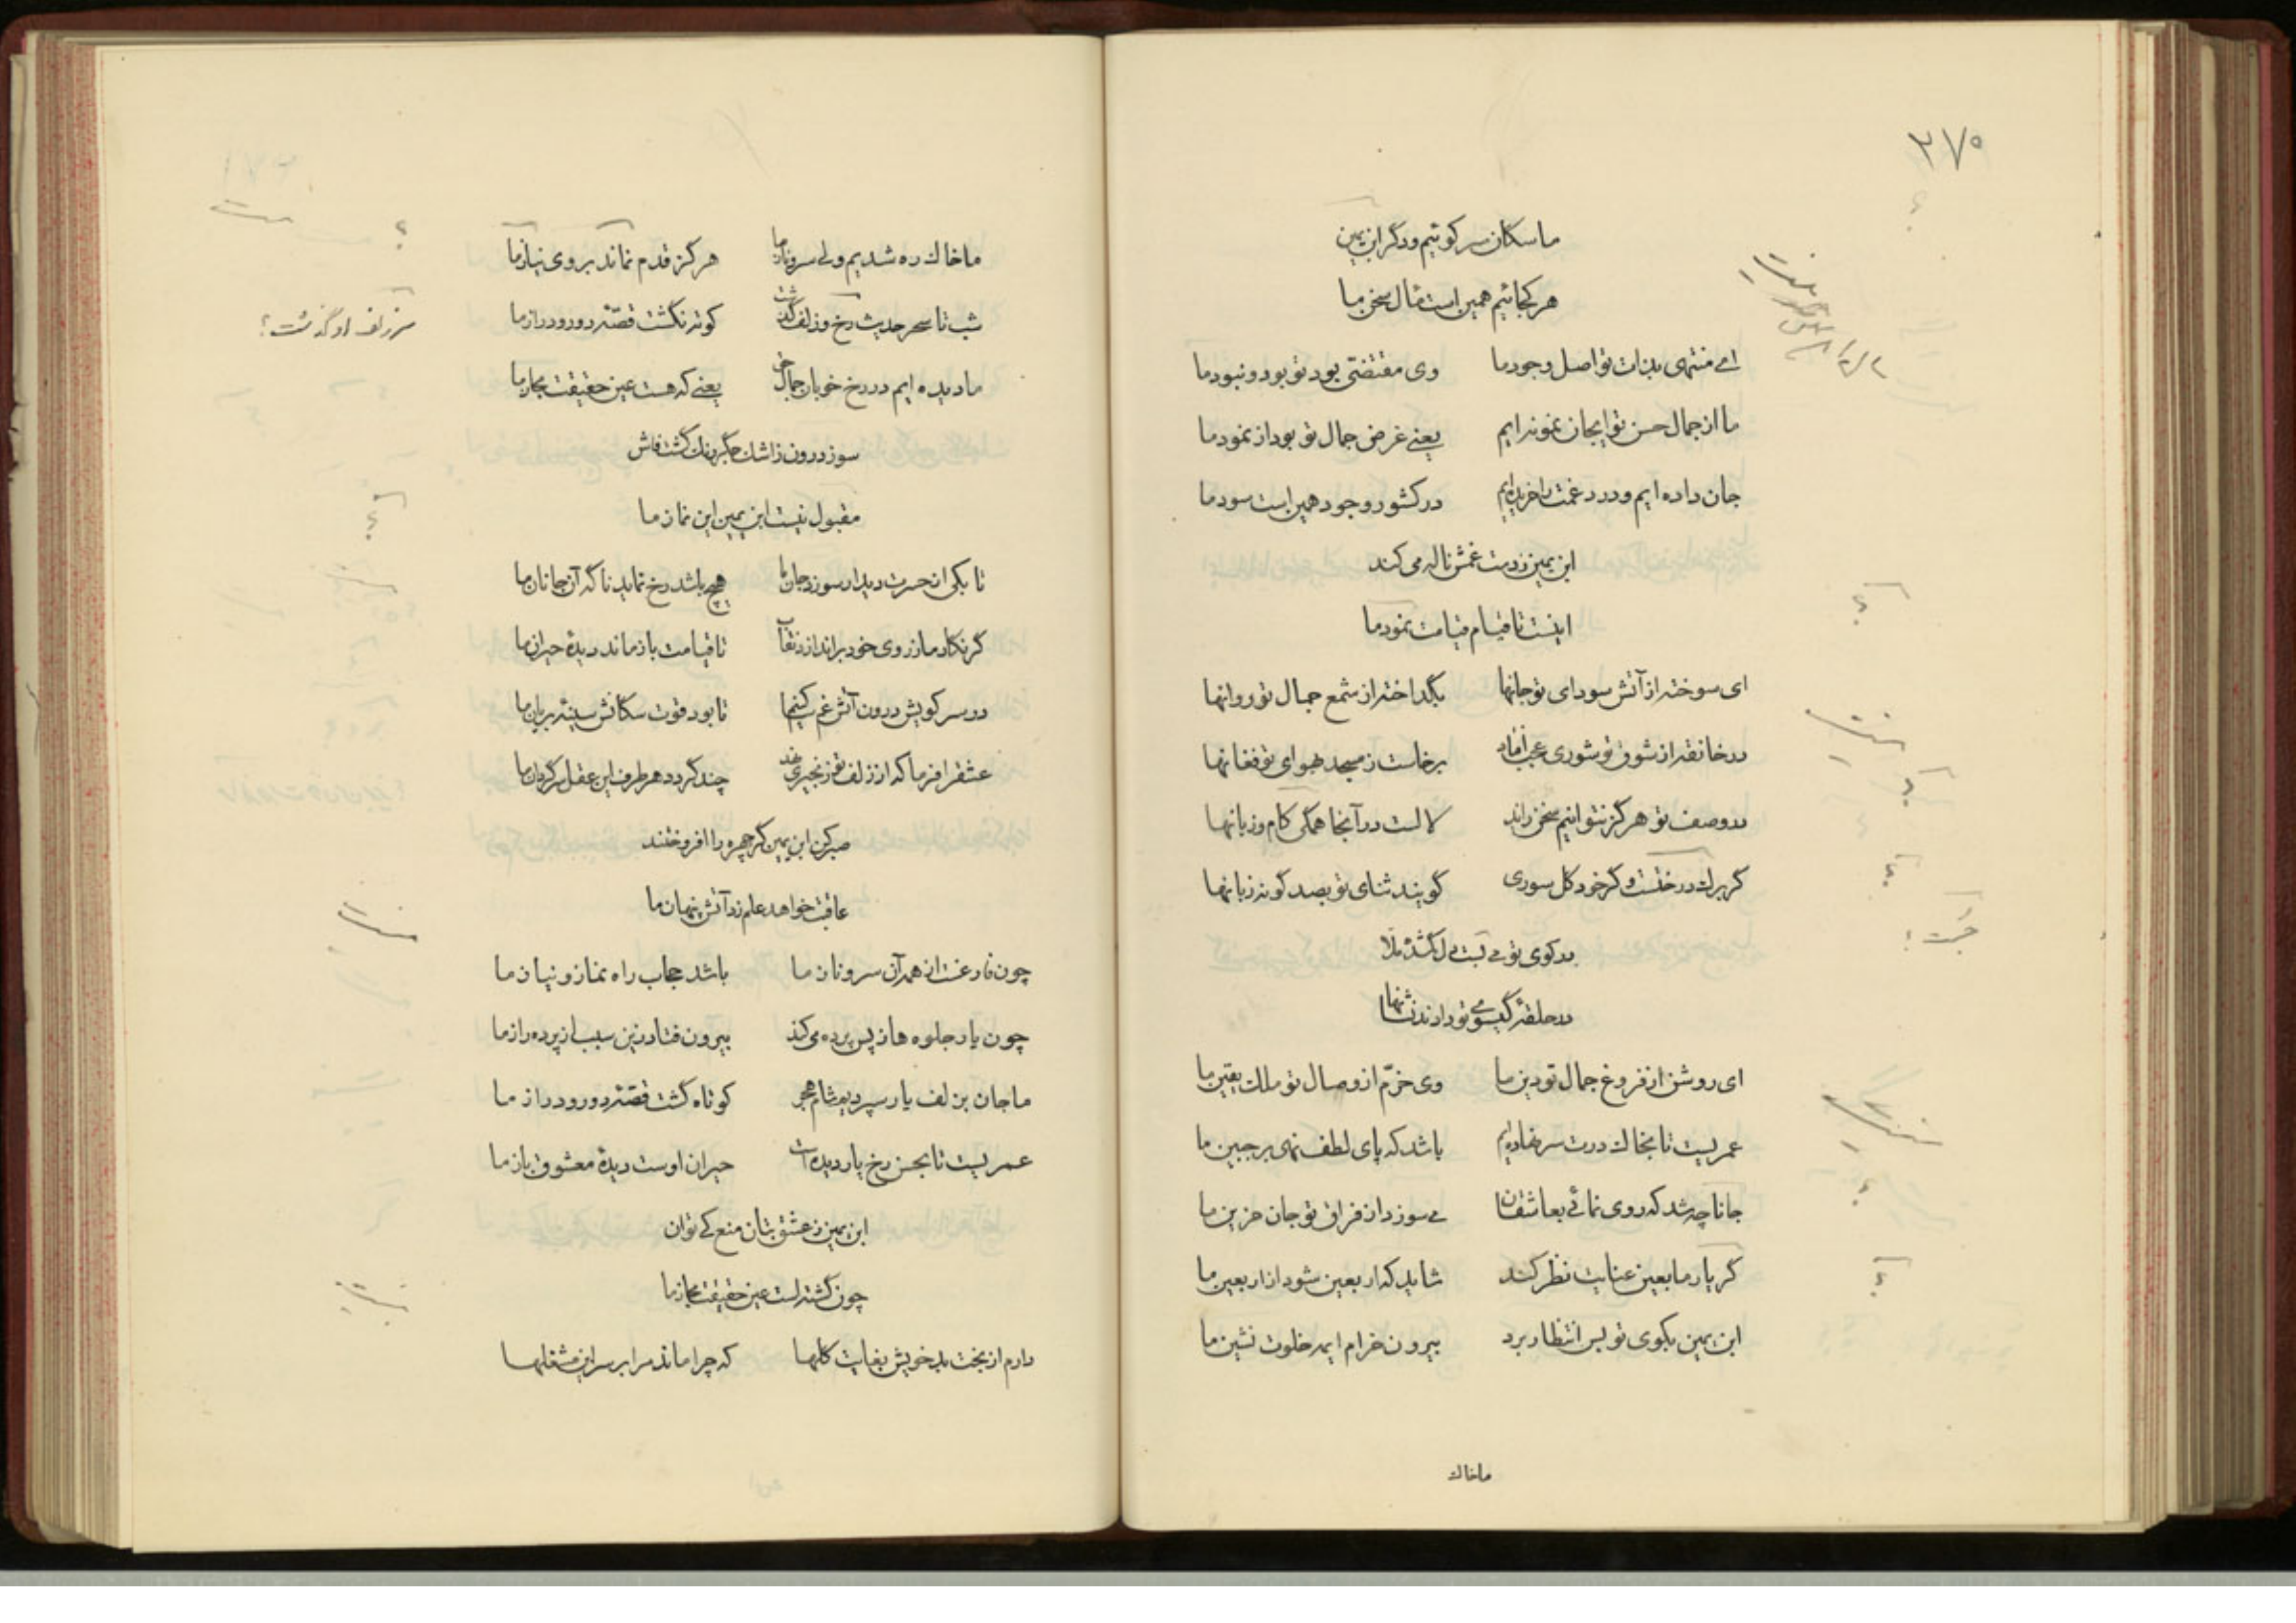 ۳۷۵
ما سکان سر کوئیم و دگر ابن یمین
هر کجائیم همین است مقال سخن ما
ای منتهی بذات تو اصل وجود ما وی مقتضی بود تو بود و نبود ما
ما از جمال حسن تو ایجان نمونه ایم یعنے غرض جمال تو بود از نمود ما
جان داده ایم و درد غمت را خریده ایم در کشور وجود همین است سود ما
ابن یمین ز دست غمش ناله می کند
اینست تا قیام قیامت نمود ما
ای سوخته از آتش سودای تو جانها بگداخته از شمع جمال تو روانها
در خانقه از شوق تو شوری عجب افتاد برخاست ز مسجد بهوای تو فغانها
در وصف تو هرگز نتوانیم سخن راند لالست در آنجا همگی کام و زبانها
گر برك درختست و گر خود گل سوری گویند ثنای تو بصد گونه زبانها
در کوی تو
در حلقۀ گیسوی تو دارند نشانها
ای روشن از فروغ جمال تو دین ما وی خرّم از وصال تو ملك یقین ما
عمریست تا بخاك درت سر نهاده ایم باشد که پای لطف نهی بر جبین ما
جانا چه شد که روی نمائے بعاشقان مے سوزد از فراق تو جان حزین ما
گر یار ما بعین عنایت نظر کند شاید که اربعین شود از اربعین ما
ابن یمین بکوی تو بس انتظار برد بیرون خرام ایمه خلوت نشین ما
ما خاك
ما خاك ره شدیم ولی سرو ناز ما هرگز قدم نماند بروی نیاز ما
شب تا سحر حدیث رخ و زلف گذشت کوته نگشت قصّۀ دور و دراز ما
سر زلف او گذشت؟
ما دیده ایم در رخ خوبان جمال حق یعنے که هست عین حقیقت مجاز ما
سوز درون ز اشك جگر رنك گشت فاش
مقبول نیست ابن یمین این نماز ما
تا بکی از حسرت دیدار سوزد جان ما هیچ باشد رخ نماید ناگه آن جانان ما
گر نگار ما ز روی خود براندازد نقاب تا قیامت باز ماند دیدۀ حیران ما
در سر کویش درون آتش غم تا بود قوت سکانش سینۀ بریان ما
عشق را فرما که از زلف تو زنجیری چند گردد هر طرف این عقل سرگردان ما
صبر کن ابن یمین گر چهره را افروختند
عاقبت خواهد علم زد آتش پنهان ما
چون فارغست از همه آن سرو ناز ما باشد حجاب راه نماز و نیاز ما
چون یار جلوه ها ز پس پرده می کند بیرون فتاد زین سبب از پرده راز ما
ما جان بزلف یار سپردیم شام هجر کوتاه گشت قصّۀ دور و دراز ما
عمریست تا بحسن رخ یار دیده است حیران اوست دیدۀ معشوق باز ما
ابن یمین ز عشق بتان منع کے توان
چون گشته است عین حقیقت مجاز ما
دارم از بخت بد خویش بغایت گلها که چرا ماند مرا بر سر این مشغلها